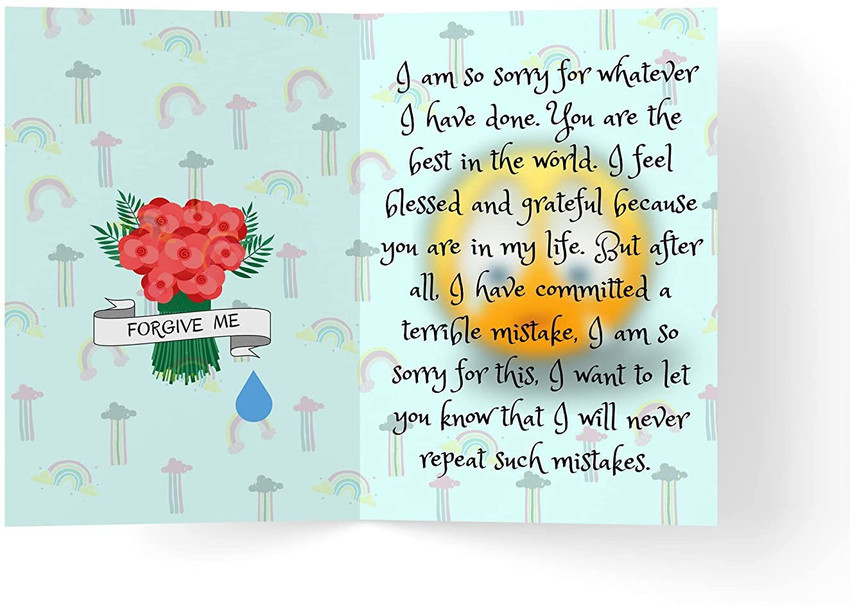 FORGIVE ME
I am so sorry for whatever
I have done. You are the
best in the world. I feel
blessed and grateful because
you are in my life. But after
all, I have committed a
terrible mistake, I am so
sorry for this, I want to let
you know that I will never
repeat such mistakes.